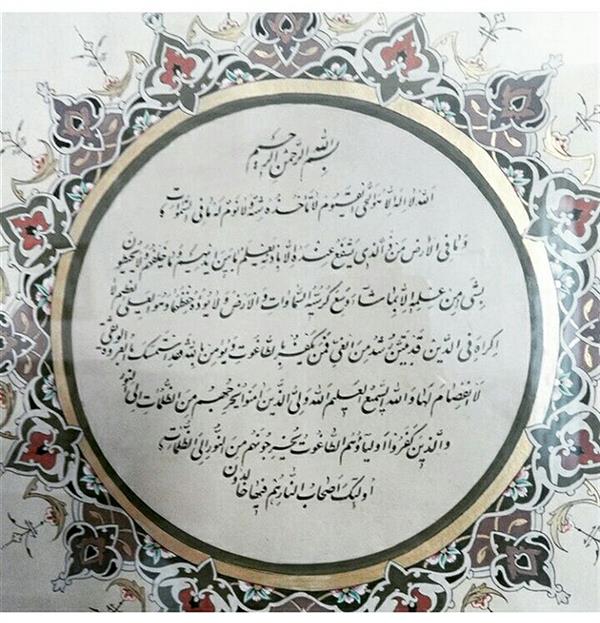 بسم الله الرحمن الرحیم
الله لا اله الا هو الحی القیوم لا تاخذه سنة و لا نوم له ما فی السموات
و ما فی الارض من ذا الذی یشفع عنده الا باذنه یعلم ما بین ایدیهم و ما خلفهم و لا یحیطون
بشیء من علمه الا بما شاء وسع کرسیه السماوات و الارض و لا یؤده حفظهما و هو العلی العظیم لا
اکراه فی الدین قد تبین الرشد من الغی فمن یکفر بالطاغوت و یؤمن بالله فقد استمسک بالعروة الوثقی
لا انفصام لها و الله السمیع العلیم الله ولی الذین امنوا یخرجهم من الظلمات الی النور
و الذین کفروا اولیاؤهم الطاغوت یخرجونهم من النور الی الظلمات
اولئک اصحاب النار هم فیها خالدون